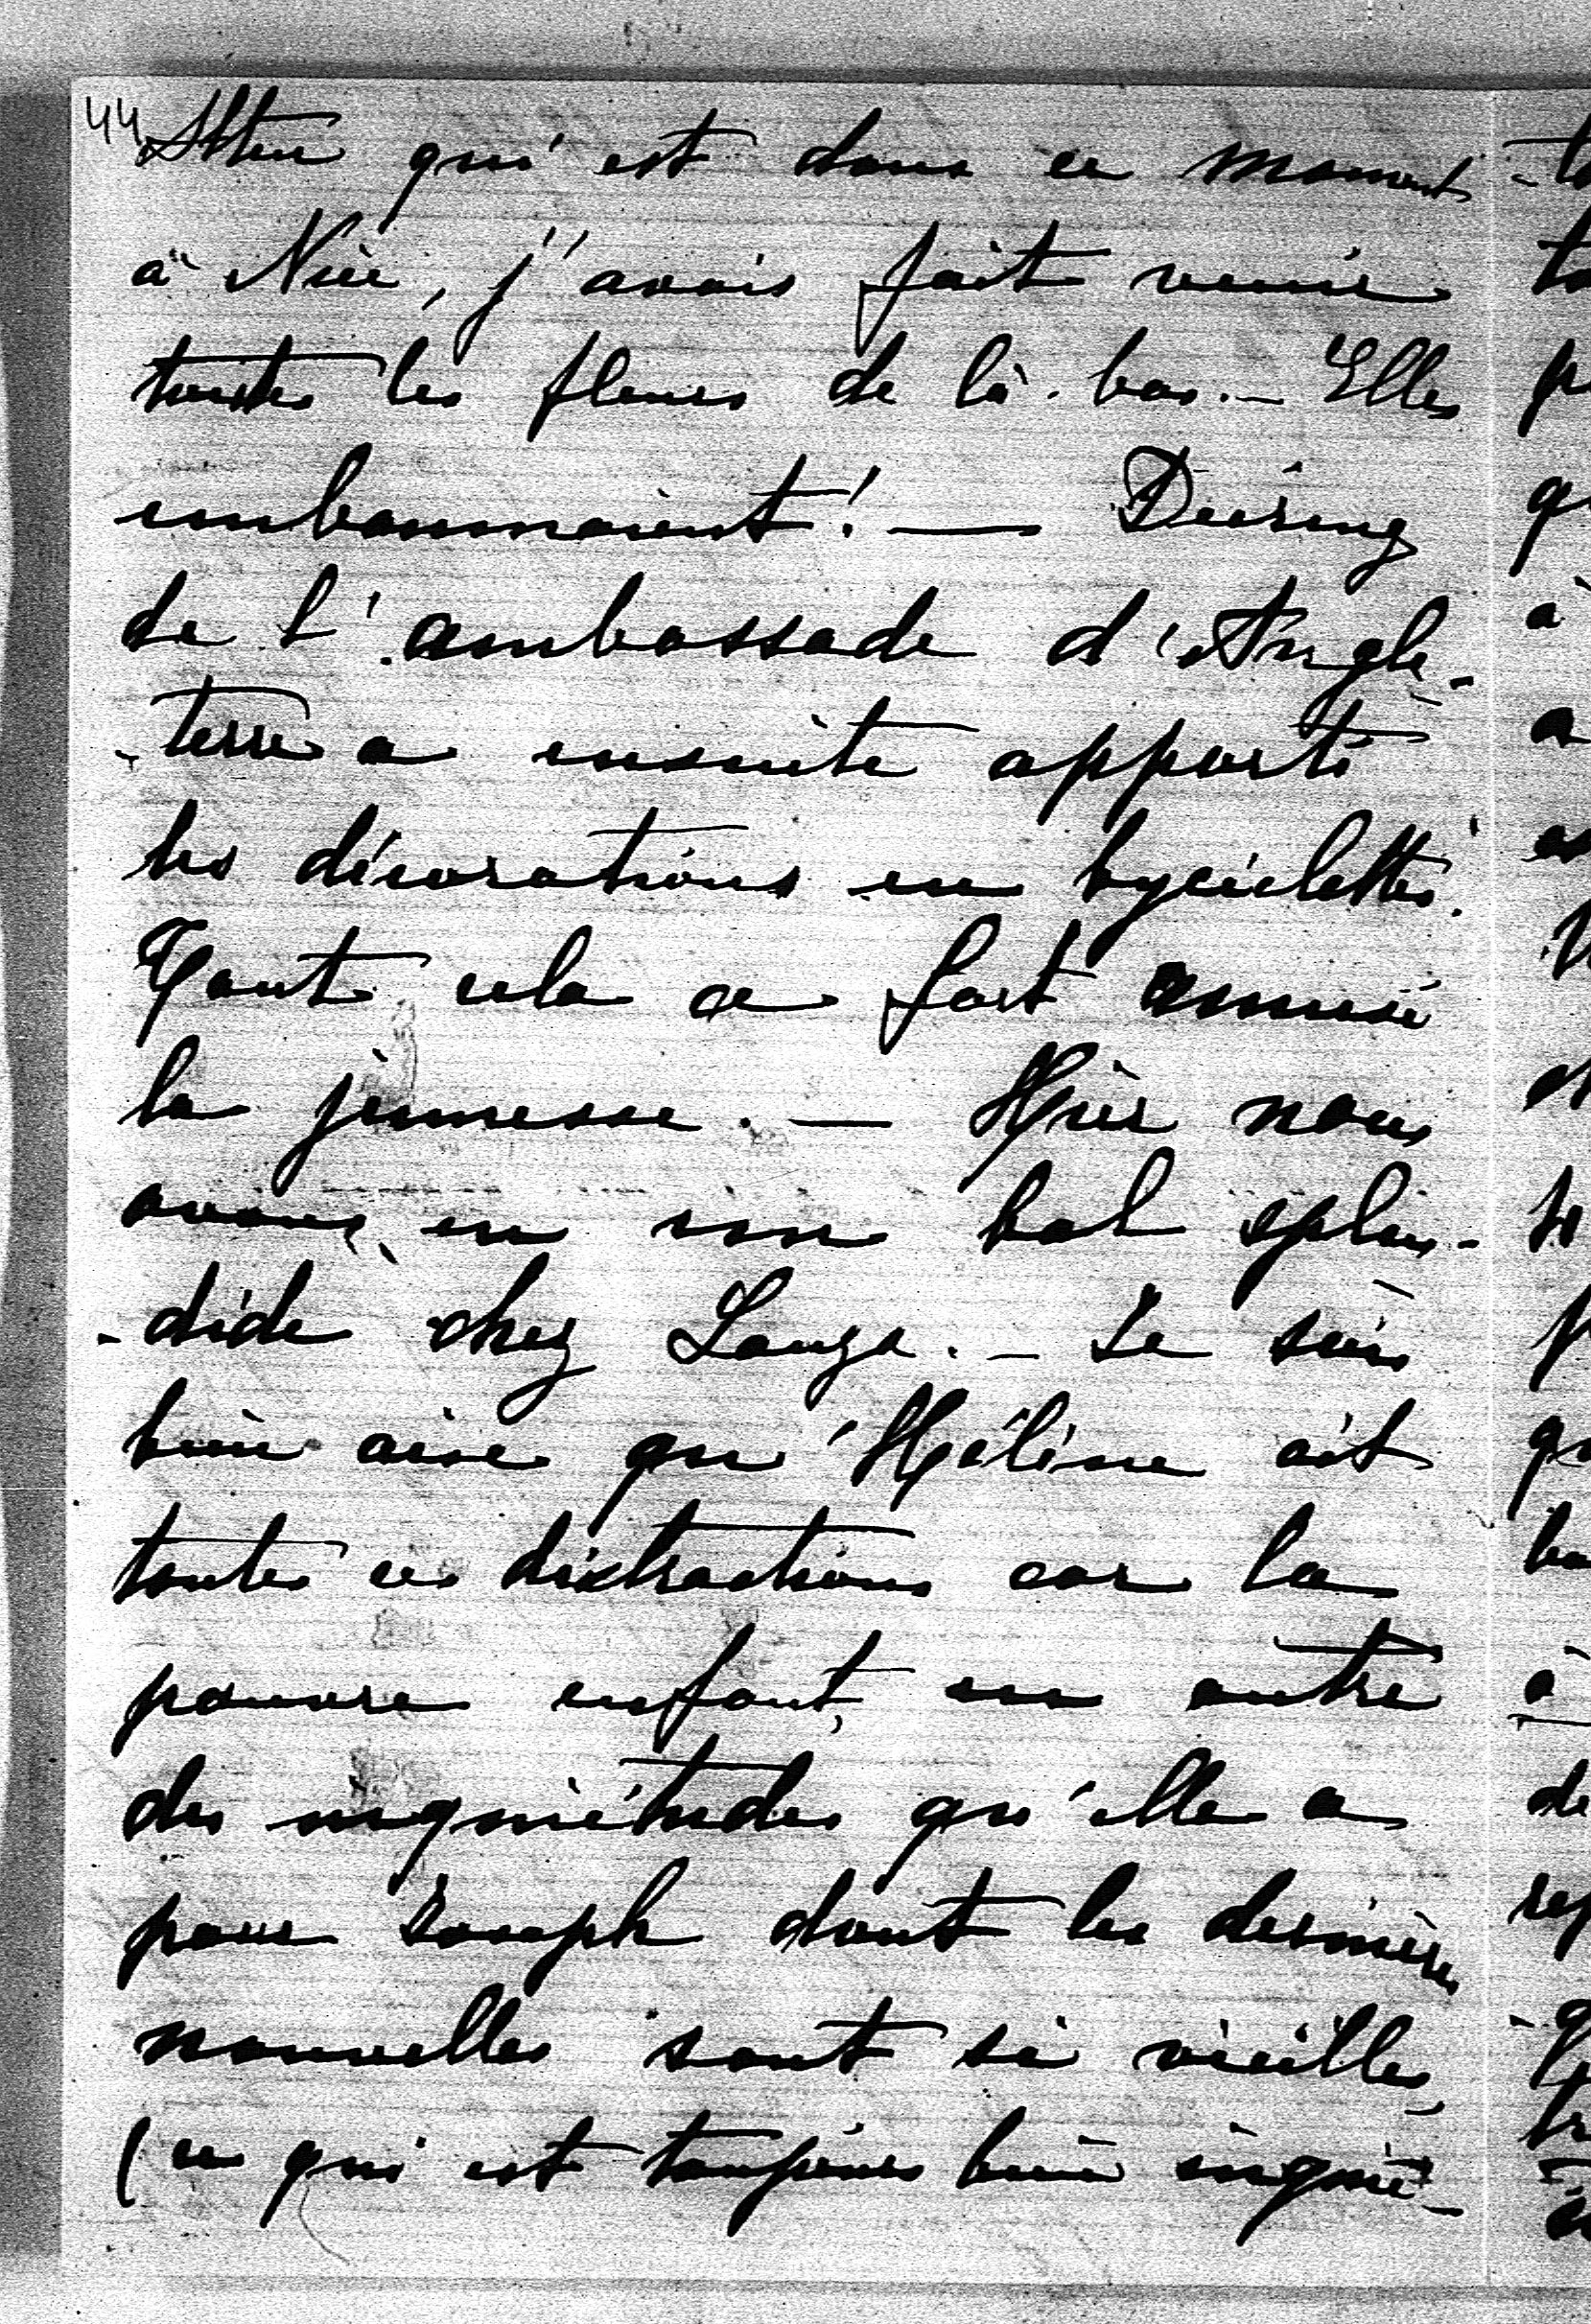 44
qui est dans ce moment
à Nice, j'avais fait venir
toutes les fleurs de là-bas. — Elles
embaumaient! — Deering
de l'ambassade d'Angle-
-terre a ensuite apporté
les décorations en bycicletté.
Tout cela a fort amusé
la jeunesse. — Hier nous
avons eu un bal splen-
-dide chez Louga. — Je suis
bien aise qu'Hélène ait
toutes ces distractions car la
pauvre enfant, en outre
des inquiétudes qu'elle a
pour Joseph dont les dernières
nouvelles sont si vieilles,
(ce qui est toujours bien inquié-